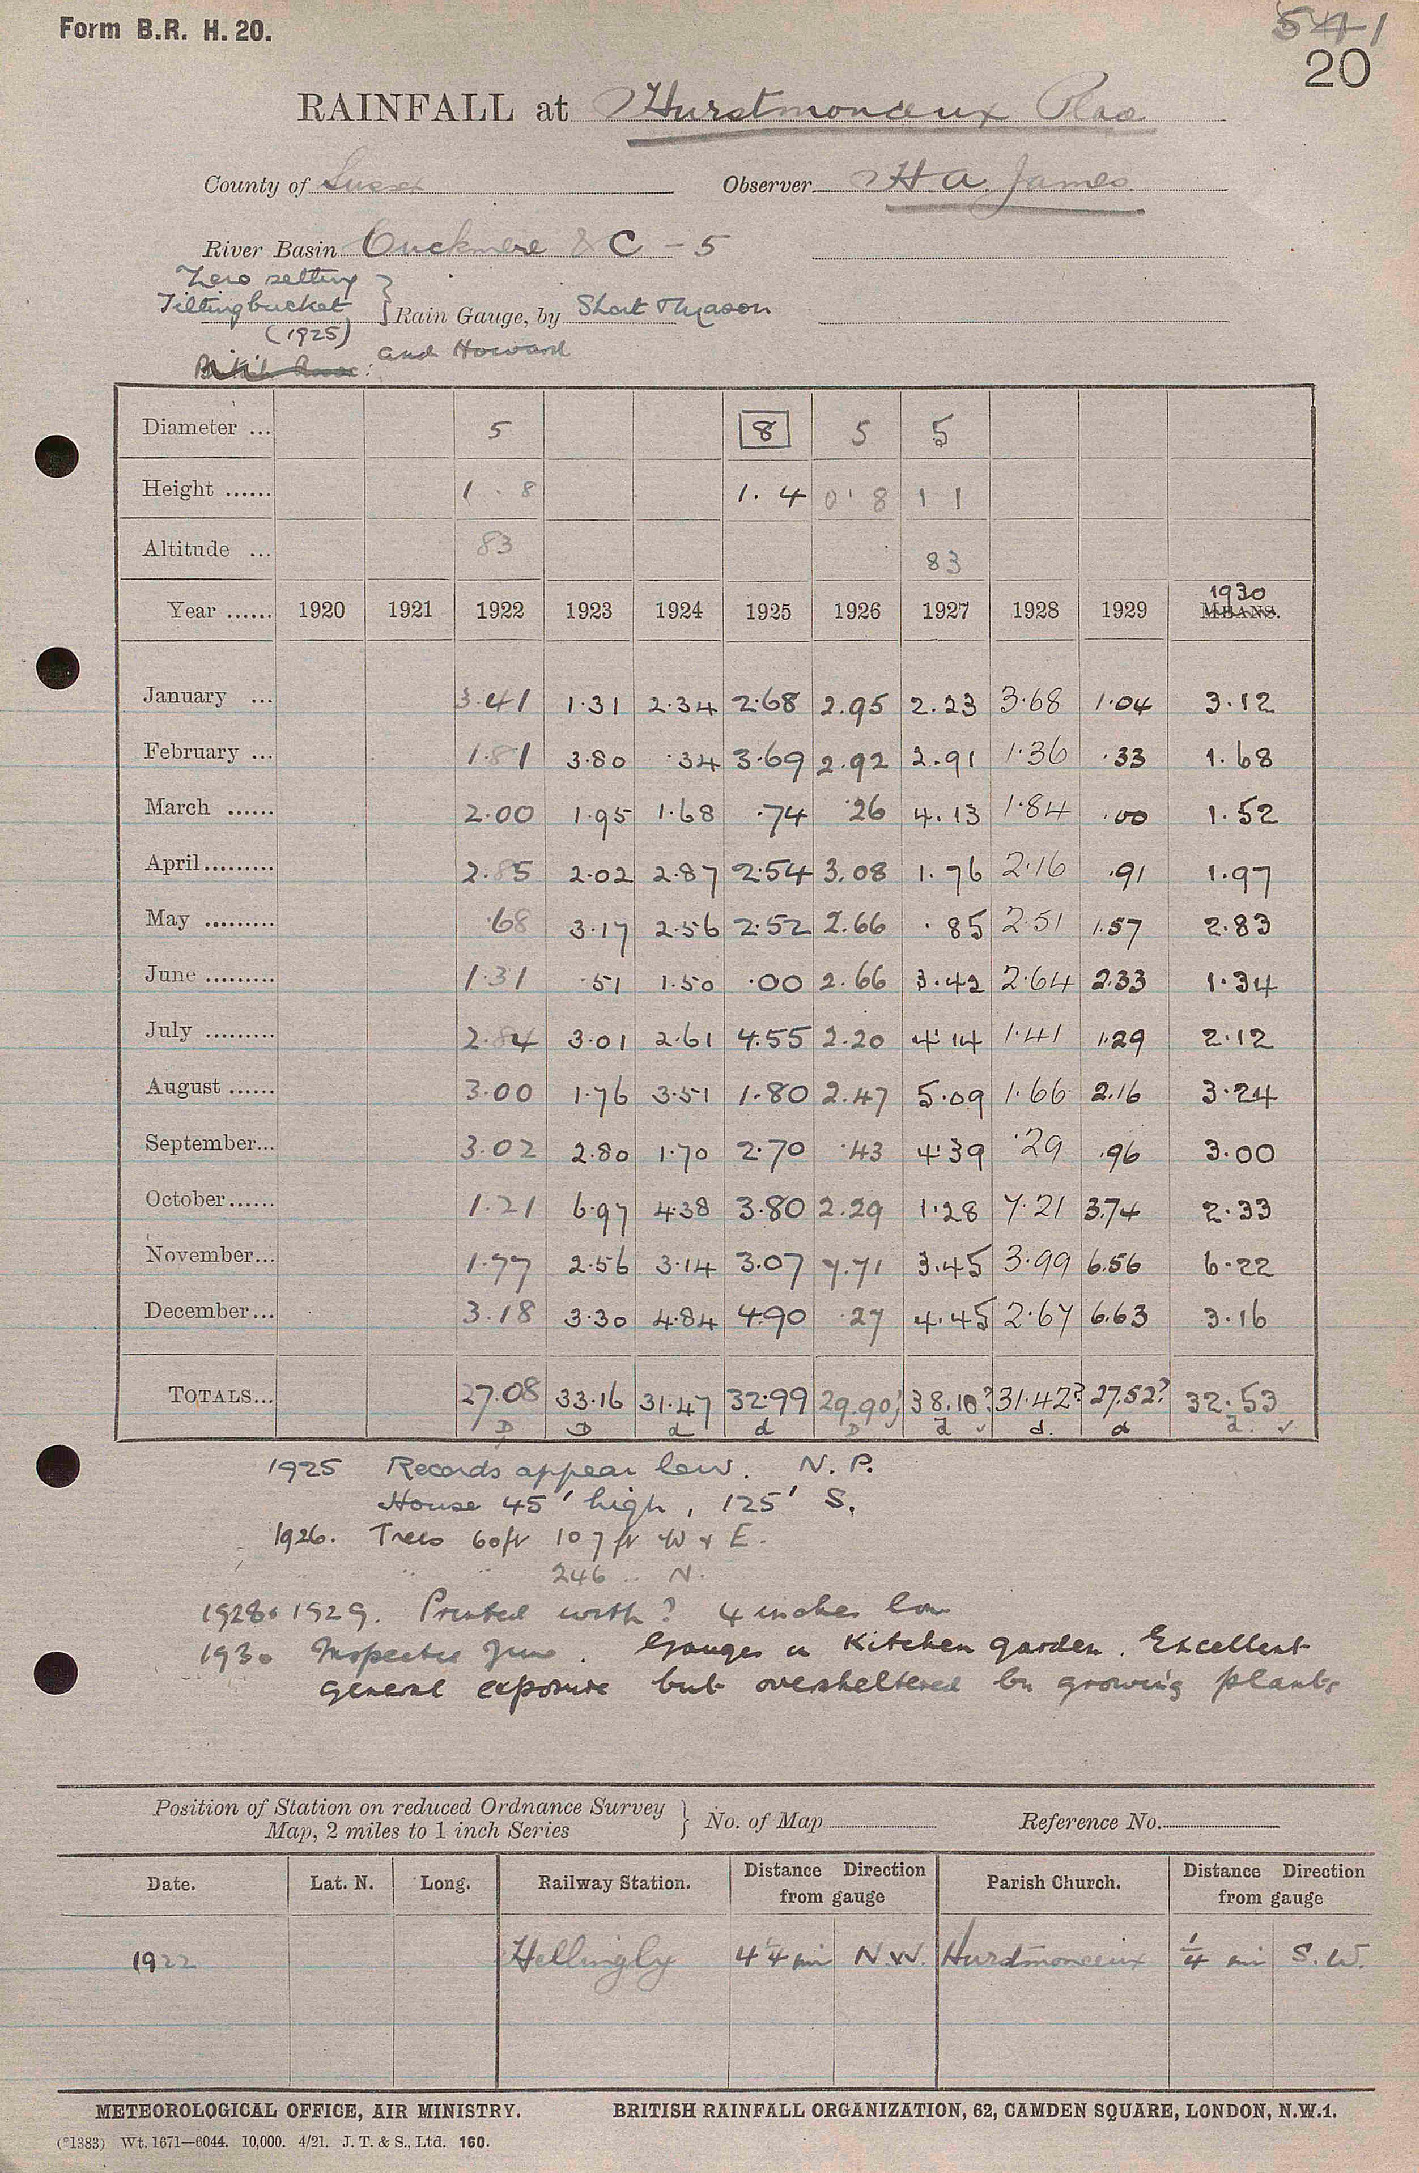 Form B.R. H. 20.
541
20
RAINFALL at Hurstmonceux Place
County of Sussex Observer H A. James
River Basin Cuckmere & C - 5
Zero setting
Tilting bucket } Rain Gauge, by Short & Mason
(1925) and Howard
Diameter ... 5 8 5 5
Height ...... 1 . 8 1 . 4 0 ' 8 1 1
Altitude ... 83 83
1930
Year ...... 1920 1921 1922 1923 1924 1925 1926 1927 1928 1929 MEANS.
January ... 3.41 1.31 2.34 2.68 2.95 2.23 3.68 1.04 3.12
February ... 1.81 3.80 .34 3.69 2.92 2.91 1.36 .33 1.68
March ...... 2.00 1.95 1.68 .74 .26 4.13 1.84 .00 1.52
April ......... 2.85 2.02 2.87 2.54 3.08 1.76 2.16 .91 1.97
May ......... .68 3.17 2.56 2.52 2.66 .85 2.51 1.57 2.83
June ......... 1.31 .51 1.50 .00 2.66 3.42 2.64 2.33 1.34
July ......... 2.84 3.01 2.61 4.55 2.20 4.14 1.41 1.29 2.12
August ...... 3.00 1.76 3.51 1.80 2.47 5.09 1.66 2.16 3.24
September... 3.02 2.80 1.70 2.70 .43 4.39 .29 .96 3.00
October...... 1.21 6.97 4.38 3.80 2.29 1.28 7.21 3.74 2.33
November... 1.77 2.56 3.14 3.07 7.71 3.45 3.99 6.56 6.22
December... 3.18 3.30 4.84 4.90 .27 4.45 2.67 6.63 3.16
TOTALS... 27.08 33.16 31.47 32.99 29.90 38.10? 31.42? 27.52? 32.53
D D d d D d ✓ d. d d. ✓
1925 Records appear low. N. P.
House 45' high, 125' S.
1926. Trees 60ft 107 ft W & E.
" " 246 .. N.
1928 & 1929. Printed with ? 4 inches low
1930 Inspected June. Gauges in Kitchen garden. Excellent
general exposure but oversheltered by growing plants
Position of Station on reduced Ordnance Survey
Map, 2 miles to 1 inch Series } No. of Map Reference No.
Date. Lat. N. Long. Railway Station. Distance Direction from gauge Parish Church. Distance Direction from gauge
1922 Hellingly 4 ¼ mi N.W. Hurstmonceux ¼ mi S. W.
METEOROLOGICAL OFFICE, AIR MINISTRY. BRITISH RAINFALL ORGANIZATION, 62, CAMDEN SQUARE, LONDON, N.W.1.
(*1383) Wt. 1671—6044. 10,000. 4/21. J. T. & S., Ltd. 160.